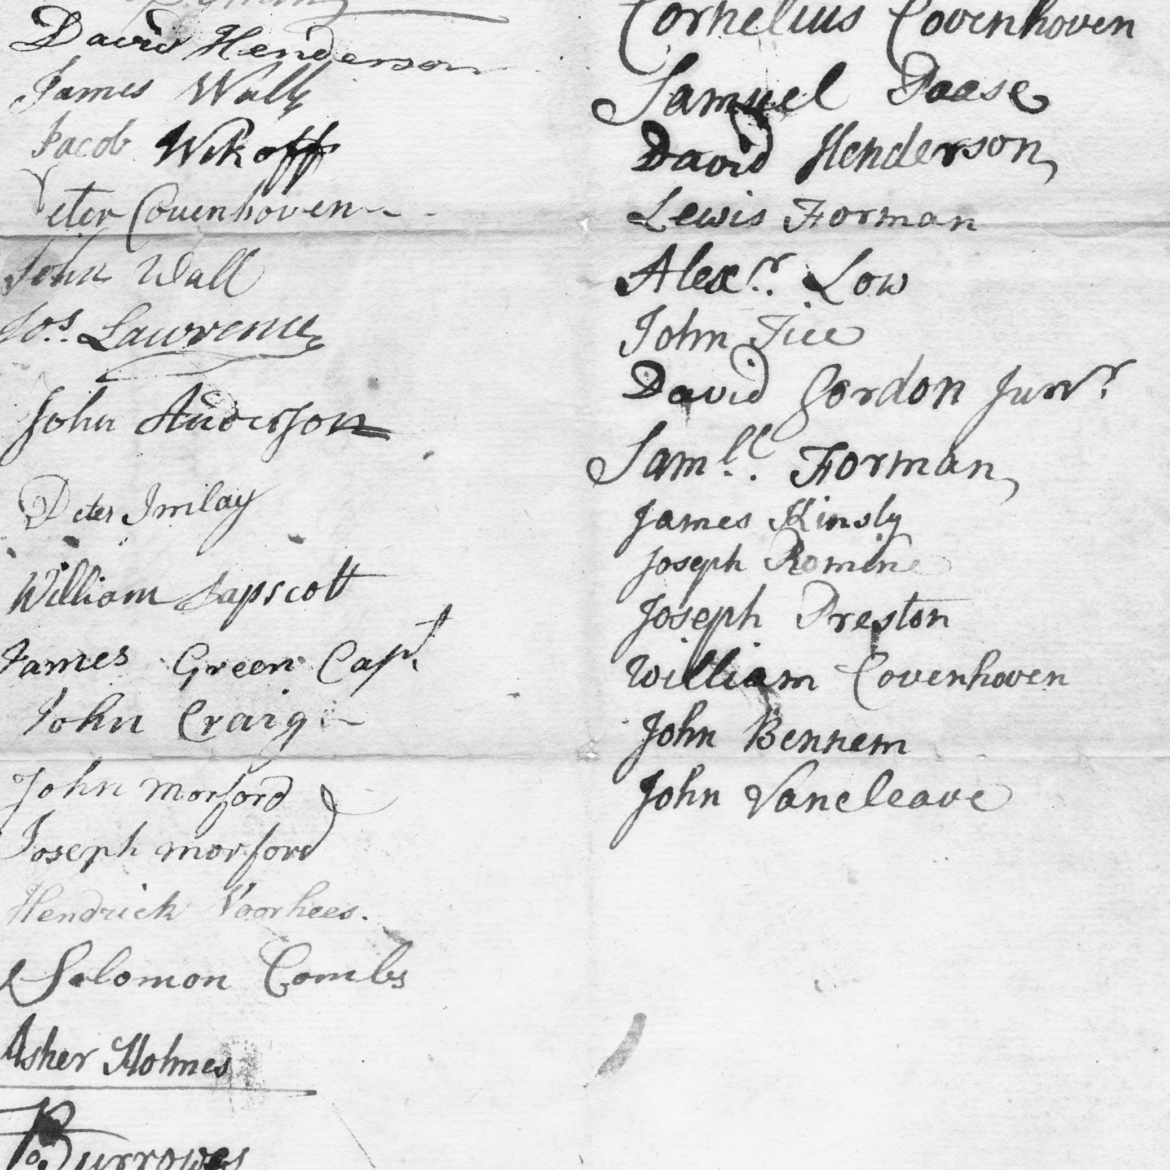 David Henderson
James Wall
Jacob Wikoff
Peter Covenhoven
John Wall
Jos. Lawrence
John Anderson
Peter Imlay
William Tapscott
James Green Capt
John Craig
John Morford
Joseph morford
Hendrick Voorhees.
Solomon Combs
Asher Holmes
Burrowes
Cornelius Covenhoven
Samuel Pease
David Henderson,
Lewis Forman
Alexr. Low
John Tice
David Gordon Junr.
Samll. Forman,
James Kinsly
Joseph Romine
Joseph Preston
William Covenhoven
John Bennem
John Vancleave